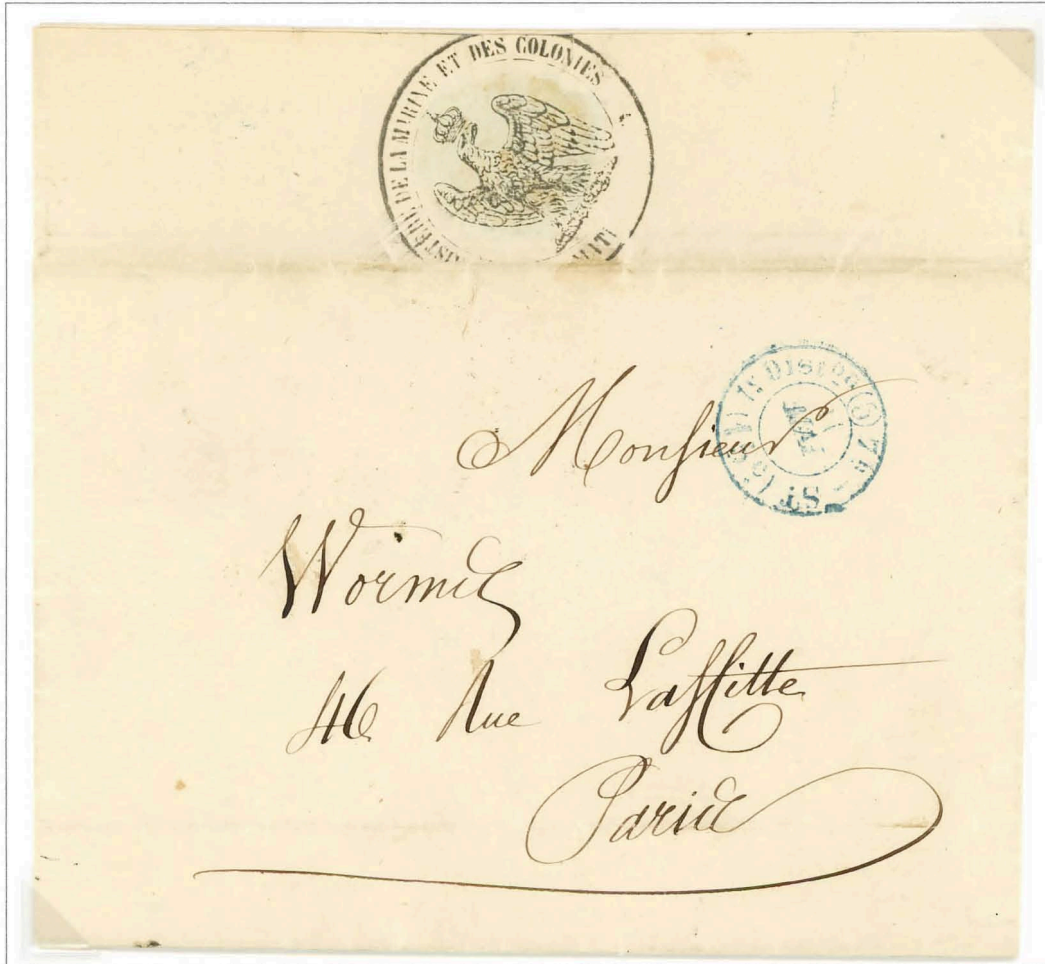 DE LA MARINE ET DES COLONIES
Monsieur
Worms
46 Rue Laffitte
Paris